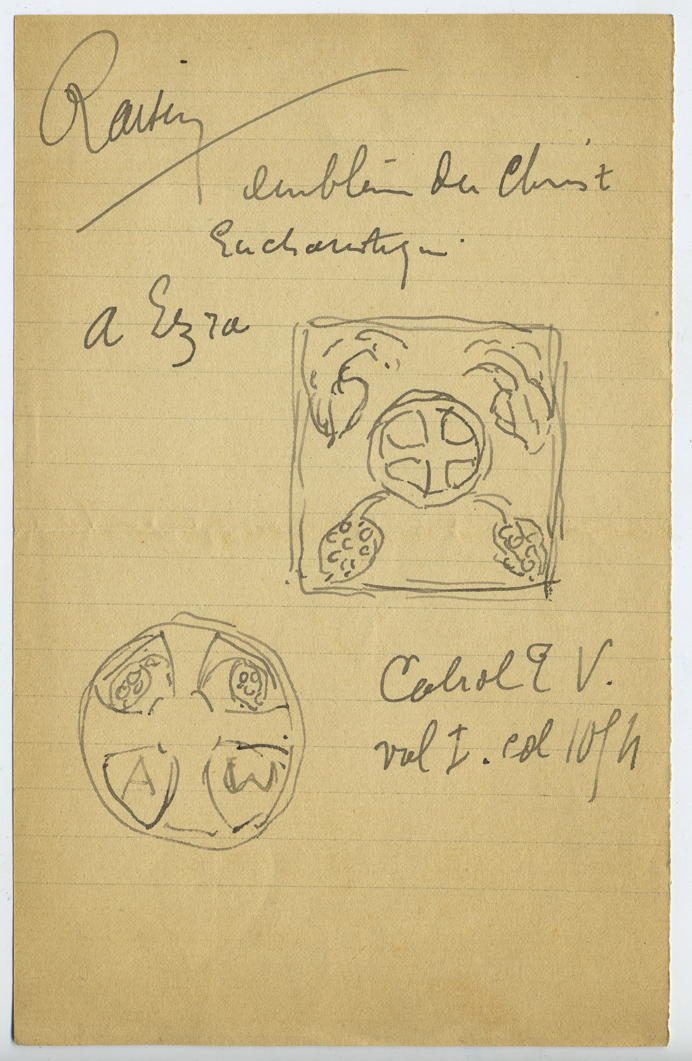 Raisin
emblème du Christ
Eucharistique
a Ezra
A W
Cabrol T V.
vol I. col